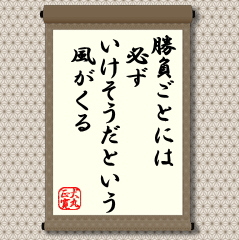 勝負ごとには
必ず
いけそうだという
風がくる